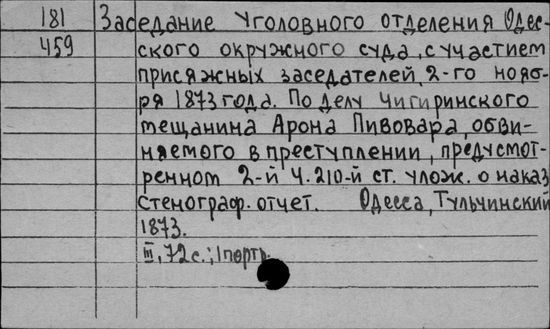 181 Заседание уголовного отделения Одес-
459 ского окружного суда с участием
присяжных заседателей, 2-го нояб-
ря 1873 года. По делу чигиринского
мещанина Арона Пивовара, обви-
няемого в преступлении, предусмот-
ренном 2-й ч. 210-й ст. улож. о наказ.
Стенограф. отчет. Одесса, Тульчинский
1873.
III, 72 с.; 1 портр.